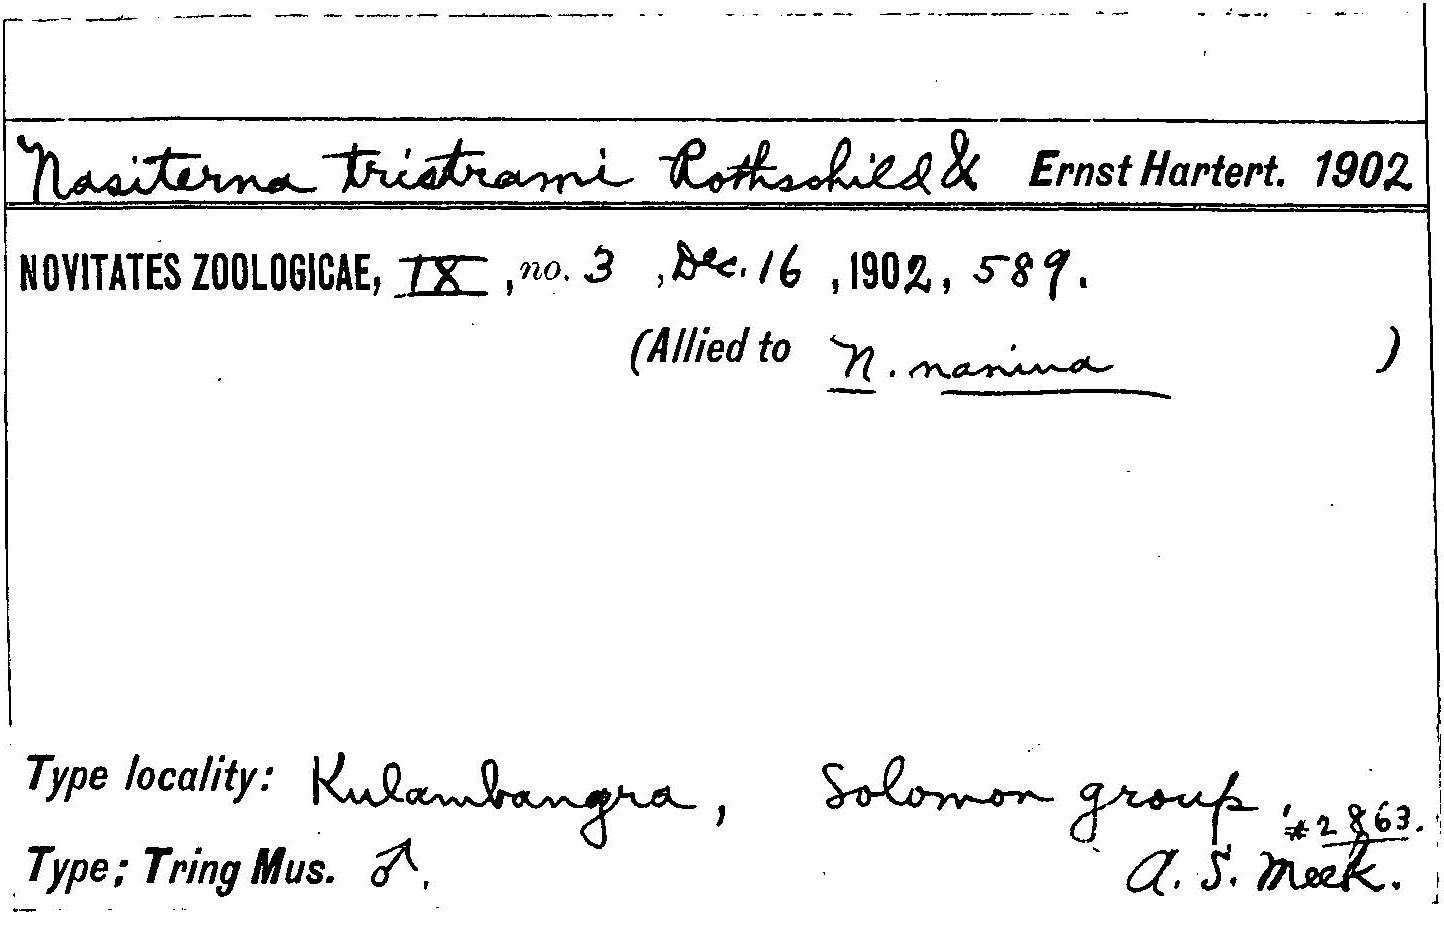 Nasiterna tristrami Rothschild & Ernst Hartert. 1902
NOVITATES ZOOLOGICAE, IX, no. 3, Dec. 16, 1902, 589.
(Allied to N. nanina)
Type locality: Kulambangra, Solomon group, #2863.
Type; Tring Mus. ♂. A. S. Meek.